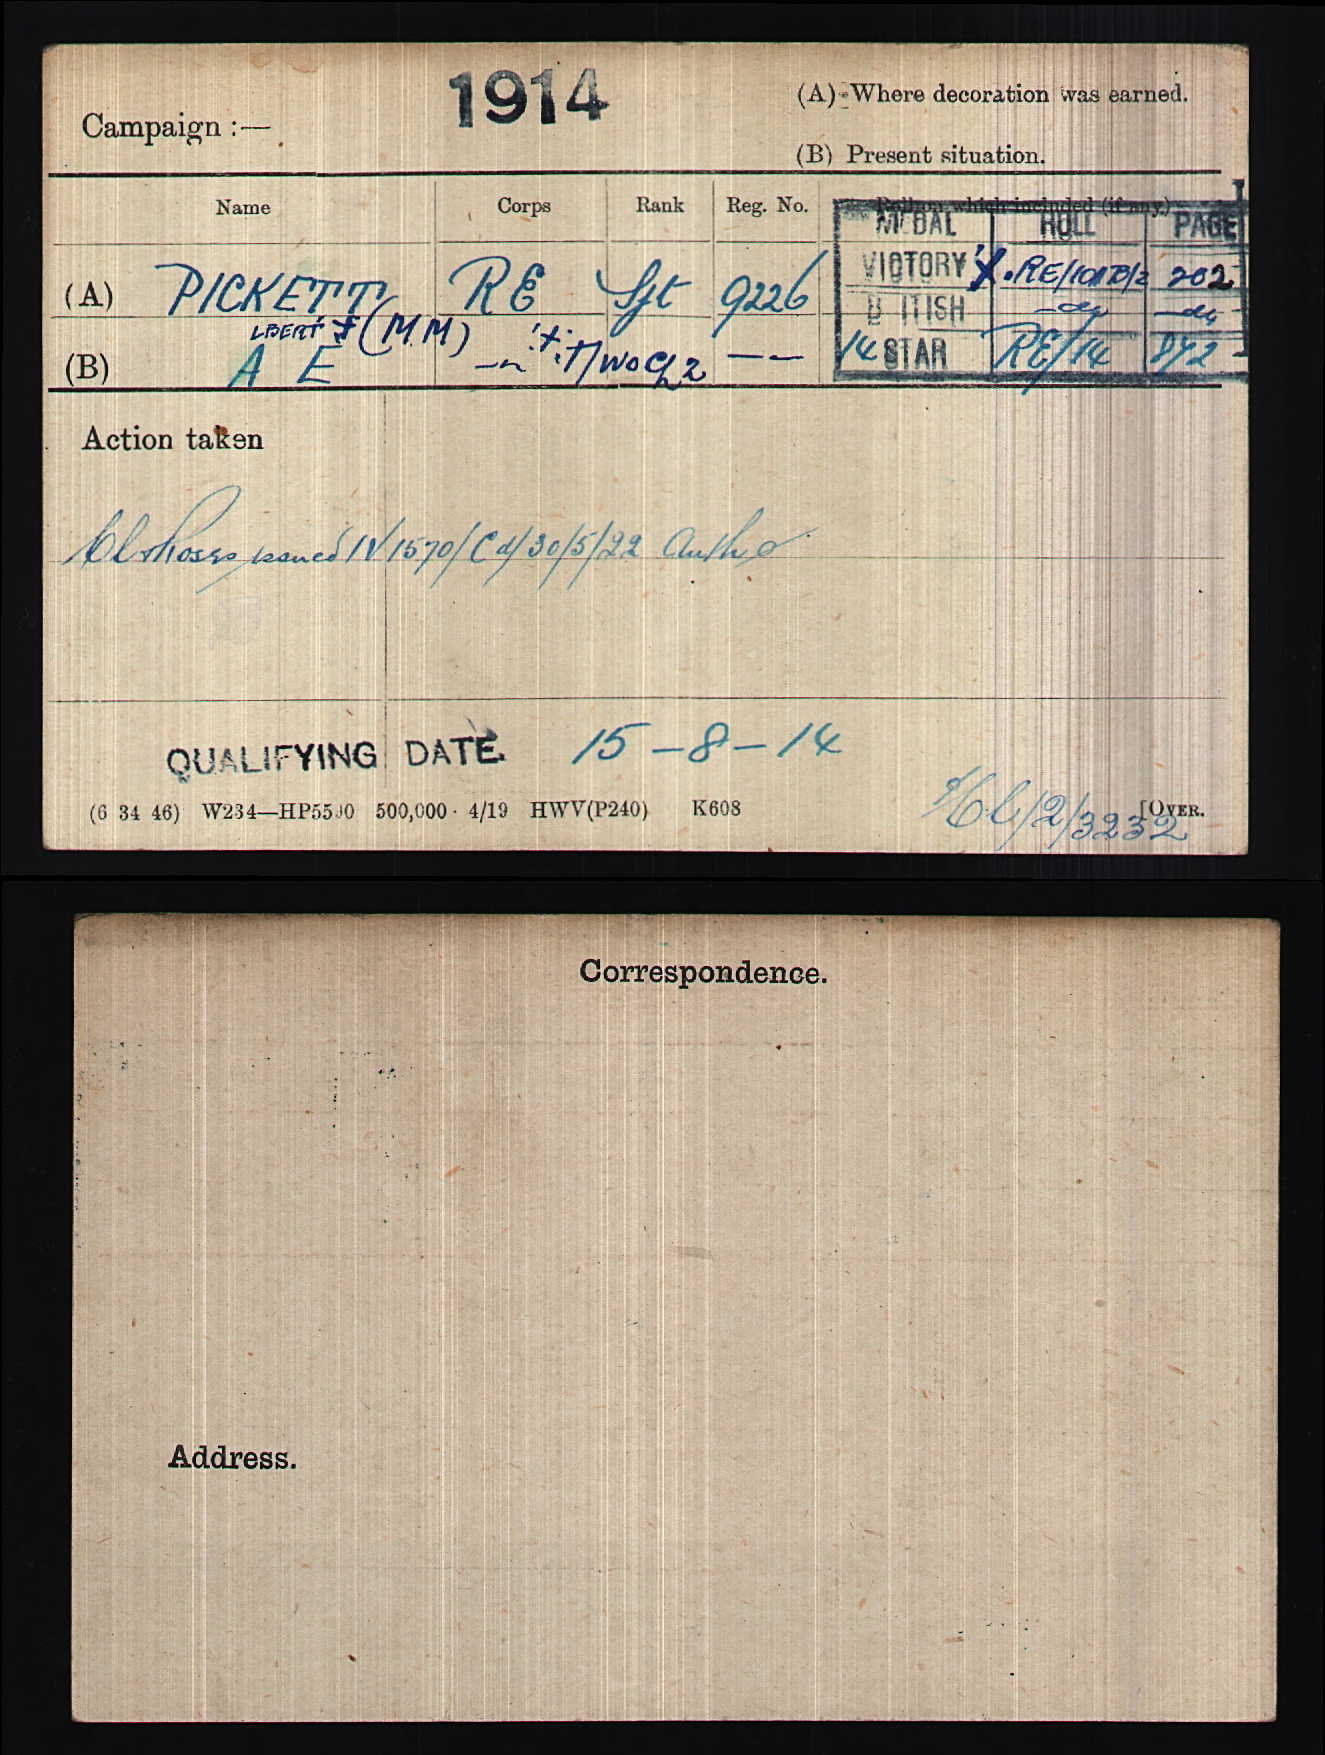 Campaign :—
1914
(A) Where decoration was earned.
(B) Present situation.
Name Corps Rank Reg. No. Roll on which included (if any)
MEDAL ROLL PAGE
(A) PICKETT RE Sjt 9226 VICTORY X. RE/101 B/2 202
LBERT (MM) B ITISH -do- -do-
(B) A E T/WOCl2 —— 14 STAR RE/14 872
Action taken
Cl & Roses issued IV/1570/Cd/30/5/22 Auth
QUALIFYING DATE. 15-8-14
(6 34 46) W234—HP5590 500,000 4/19 HWV(P240) K608 [OVER.
/2/3232
Correspondence.
Address.